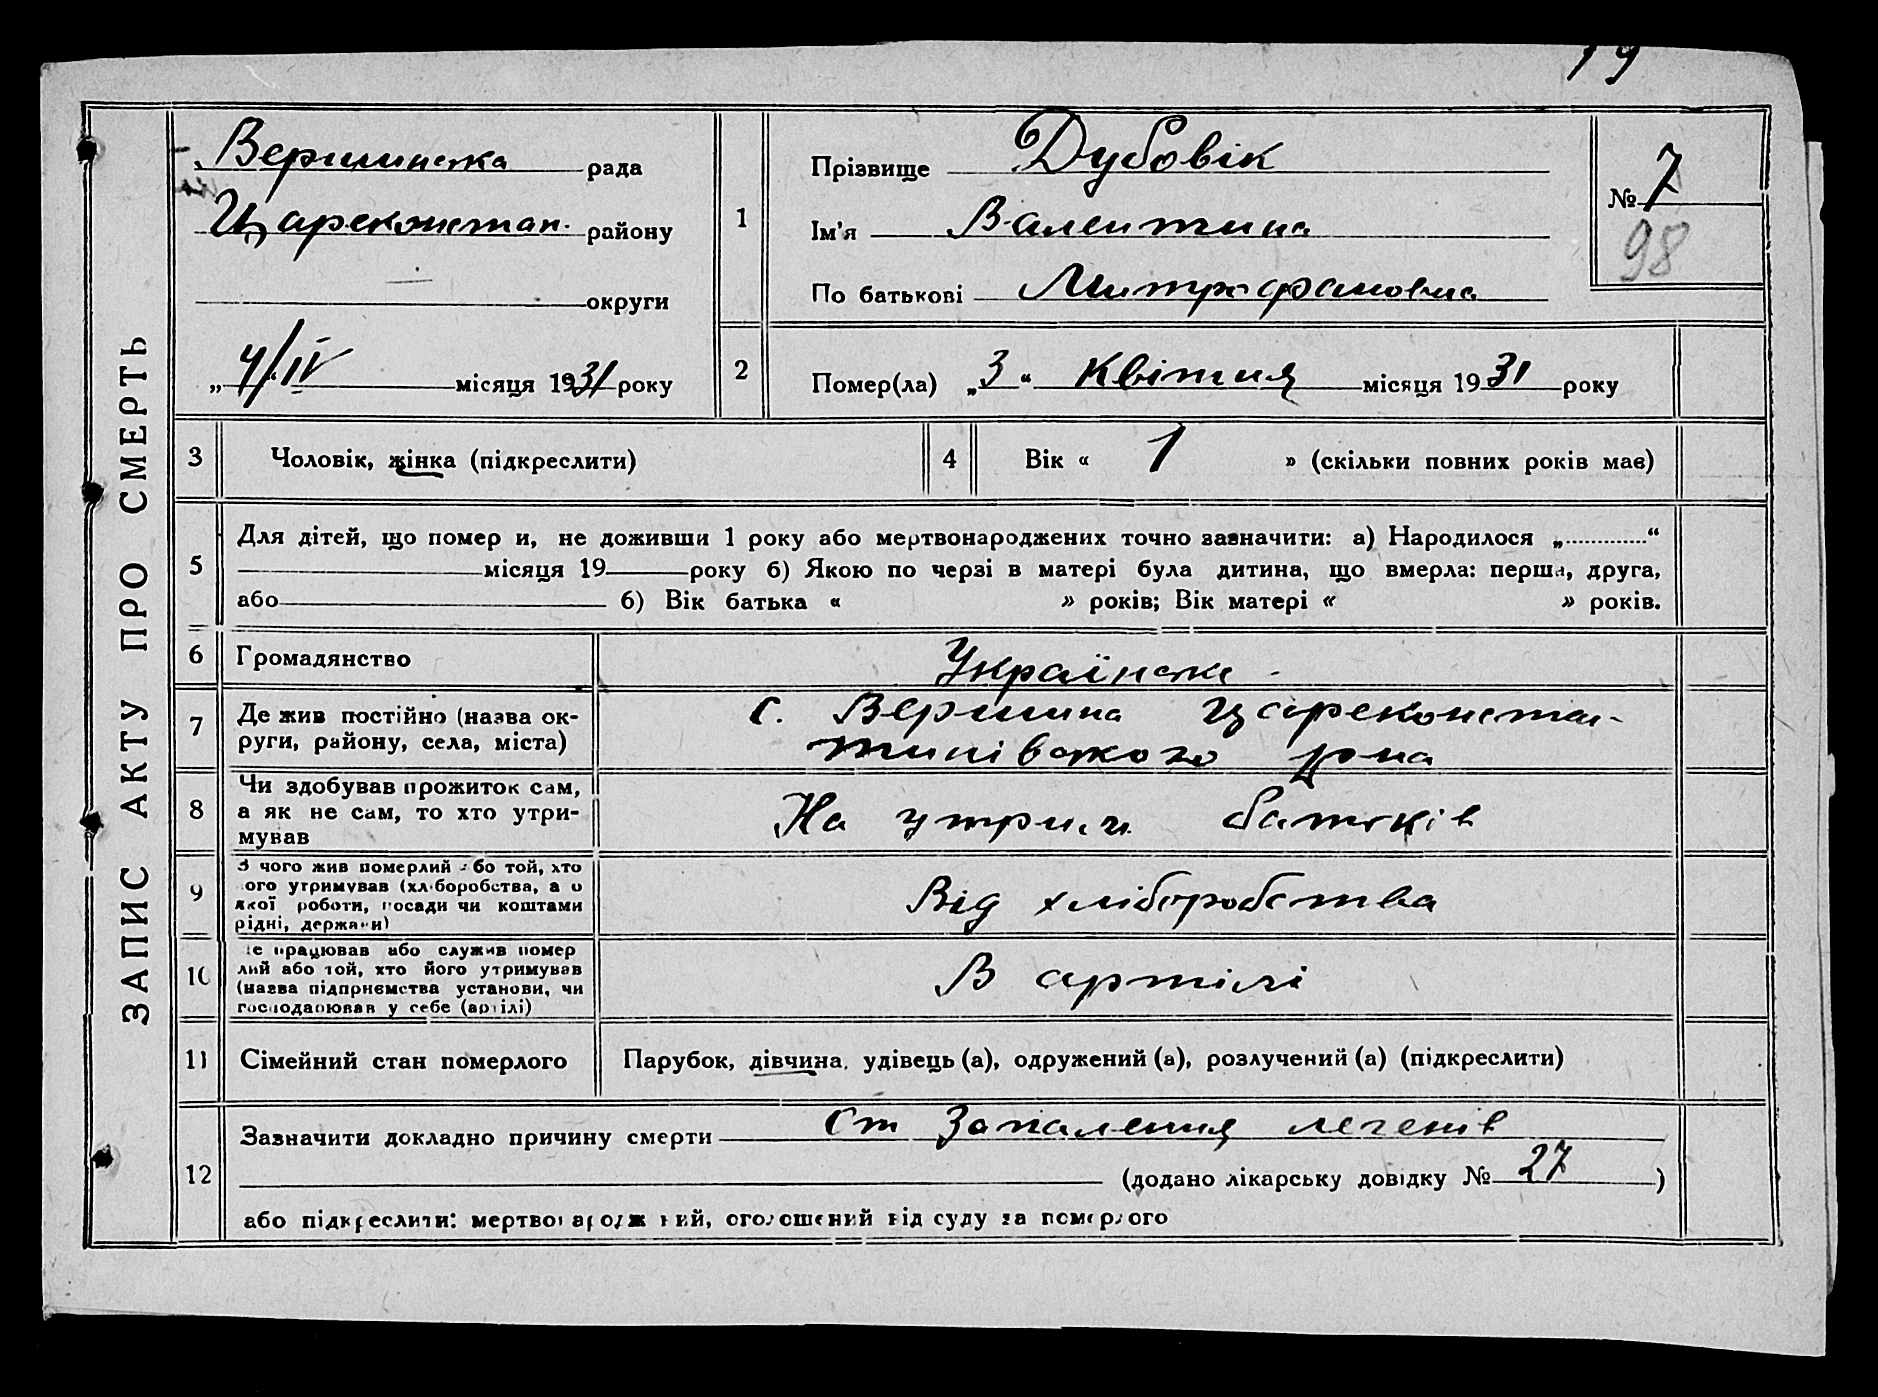 19
ЗАПИС АКТУ ПРО СМЕРТЬ
Вершинська рада
Цареконстан. району
округи
„4/IV“ місяця 1931 року
1
Прізвище Дубовік
Ім'я Валентина
По батькові Митрофановна
№ 7
98
2
Помер(ла) „3“ Квітня місяця 1931 року
3
Чоловік, жінка (підкреслити)
4
Вік « 1 » (скільки повних років має)
5
Для дітей, що помер и, не доживши 1 року або мертвонароджених точно зазначити: а) Народилося „ “
місяця 19 року б) Якою по черзі в матері була дитина, що вмерла: перша, друга,
або б) Вік батька « » років; Вік матері « » років.
6
Громадянство
Українська
7
Де жив постійно (назва ок-
руги, району, села, міста)
с. Вершина Царекостан-
тинівського р-на
8
Чи здобував прожиток сам,
а як не сам, то хто утри-
мував
На утрим. батьків
9
З чого жив померлий або той, хто
його утримував (хліборобства, а о
якої роботи, посади чи коштами
рідні, держави)
Від хліборобства
10
Де працював або служив помер
лий або той, хто його утримував
(назва підприємства установи, чи
господарював у себе (артілі)
В артілі
11
Сімейний стан померлого
Парубок, дівчина, удівець (а), одружений (а), розлучений (а) (підкреслити)
12
Зазначити докладно причину смерти От Запалення легенів
(додано лікарську довідку № 27 )
або підкреслити: мертвонароджений, оголошений від суду за померлого